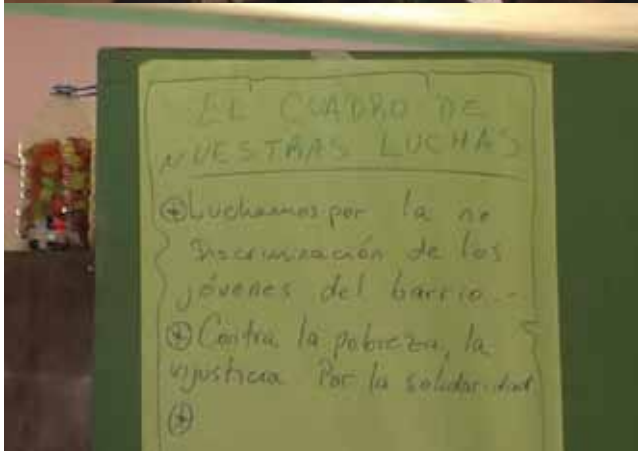 EL CUADRO DE
NUESTRAS LUCHAS
⊛ Luchamos por la no
discriminación de los
jóvenes del barrio.-
⊛ Contra la pobreza, la
injusticia. Por la solidaridad.
⊛